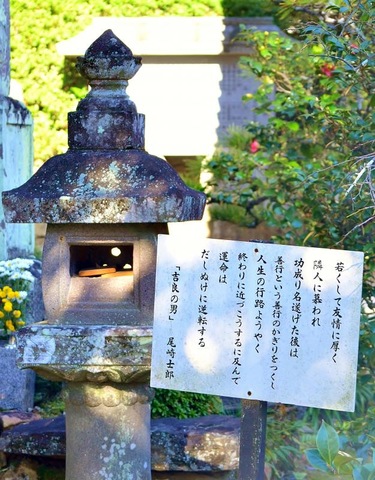 若くして友情に厚く
隣人に慕われ
功成り名遂げた後は
善行という善行のかぎりをつくし
人生の行路ようやく
終わりに近づこうするに及んて
運命は
だしぬけに逆転する
「吉良の男」 尾崎士郎